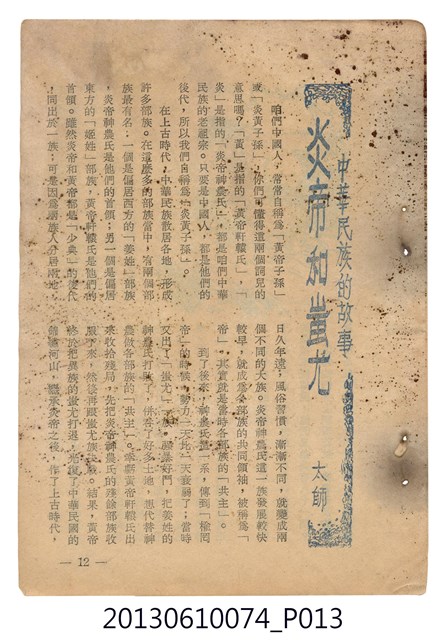 中華民族的故事
炎帝和蚩尤
太師
咱們中國人，常常自稱為「黃帝子孫」
或「炎黃子孫」，你們可懂得這兩個詞兒的
意思嗎？「黃」是指的「黃帝軒轅氏」，「
炎」是指的「炎帝神農氏」，都是咱們中華
民族的老祖宗。只要是中國人，都是他們的
後代，所以我們自稱爲「炎黃子孫」。
在上古時代，中華民族散居各地，形成
許多部族。在這麼多的部族當中，有兩個部
族最有名，一個是偏居西方的「姜姓」部族
，炎帝神農氏是他們的首領；另一個是偏居
東方的「姬姓」部族，黃帝軒轅氏是他們的
首領。雖然炎帝和黃帝都是「少典」的後代
，同出於一族；可是因爲居族人分居兩地，
日久年遠，風俗習慣，漸漸不同，就變成兩
個不同的大族。炎帝神農氏這一族發展較快
較早，就成爲各部族的共同領袖，被稱爲「
帝」。其實就是當時各部族的「共主」。
到了後來，神農氏這一系，傳到「榆罔
帝」的時候，勢力一天比一天衰弱了；當時
又出了「蚩尤」一族，驍勇好鬥，把姜姓的
神農氏打敗了，併吞了好多土地，想代替神
農做各部族的「共主」。幸虧黃帝軒轅氏出
來收拾殘局，先把炎帝神農氏的殘餘部族收
服了來，然後再跟蚩尤族大戰。結果，黃帝
終於把異族的蚩尤打退，光復了中華民國的
錦繡河山，繼承炎帝之後，作了上古時代，
— 12 —
20130610074_P013